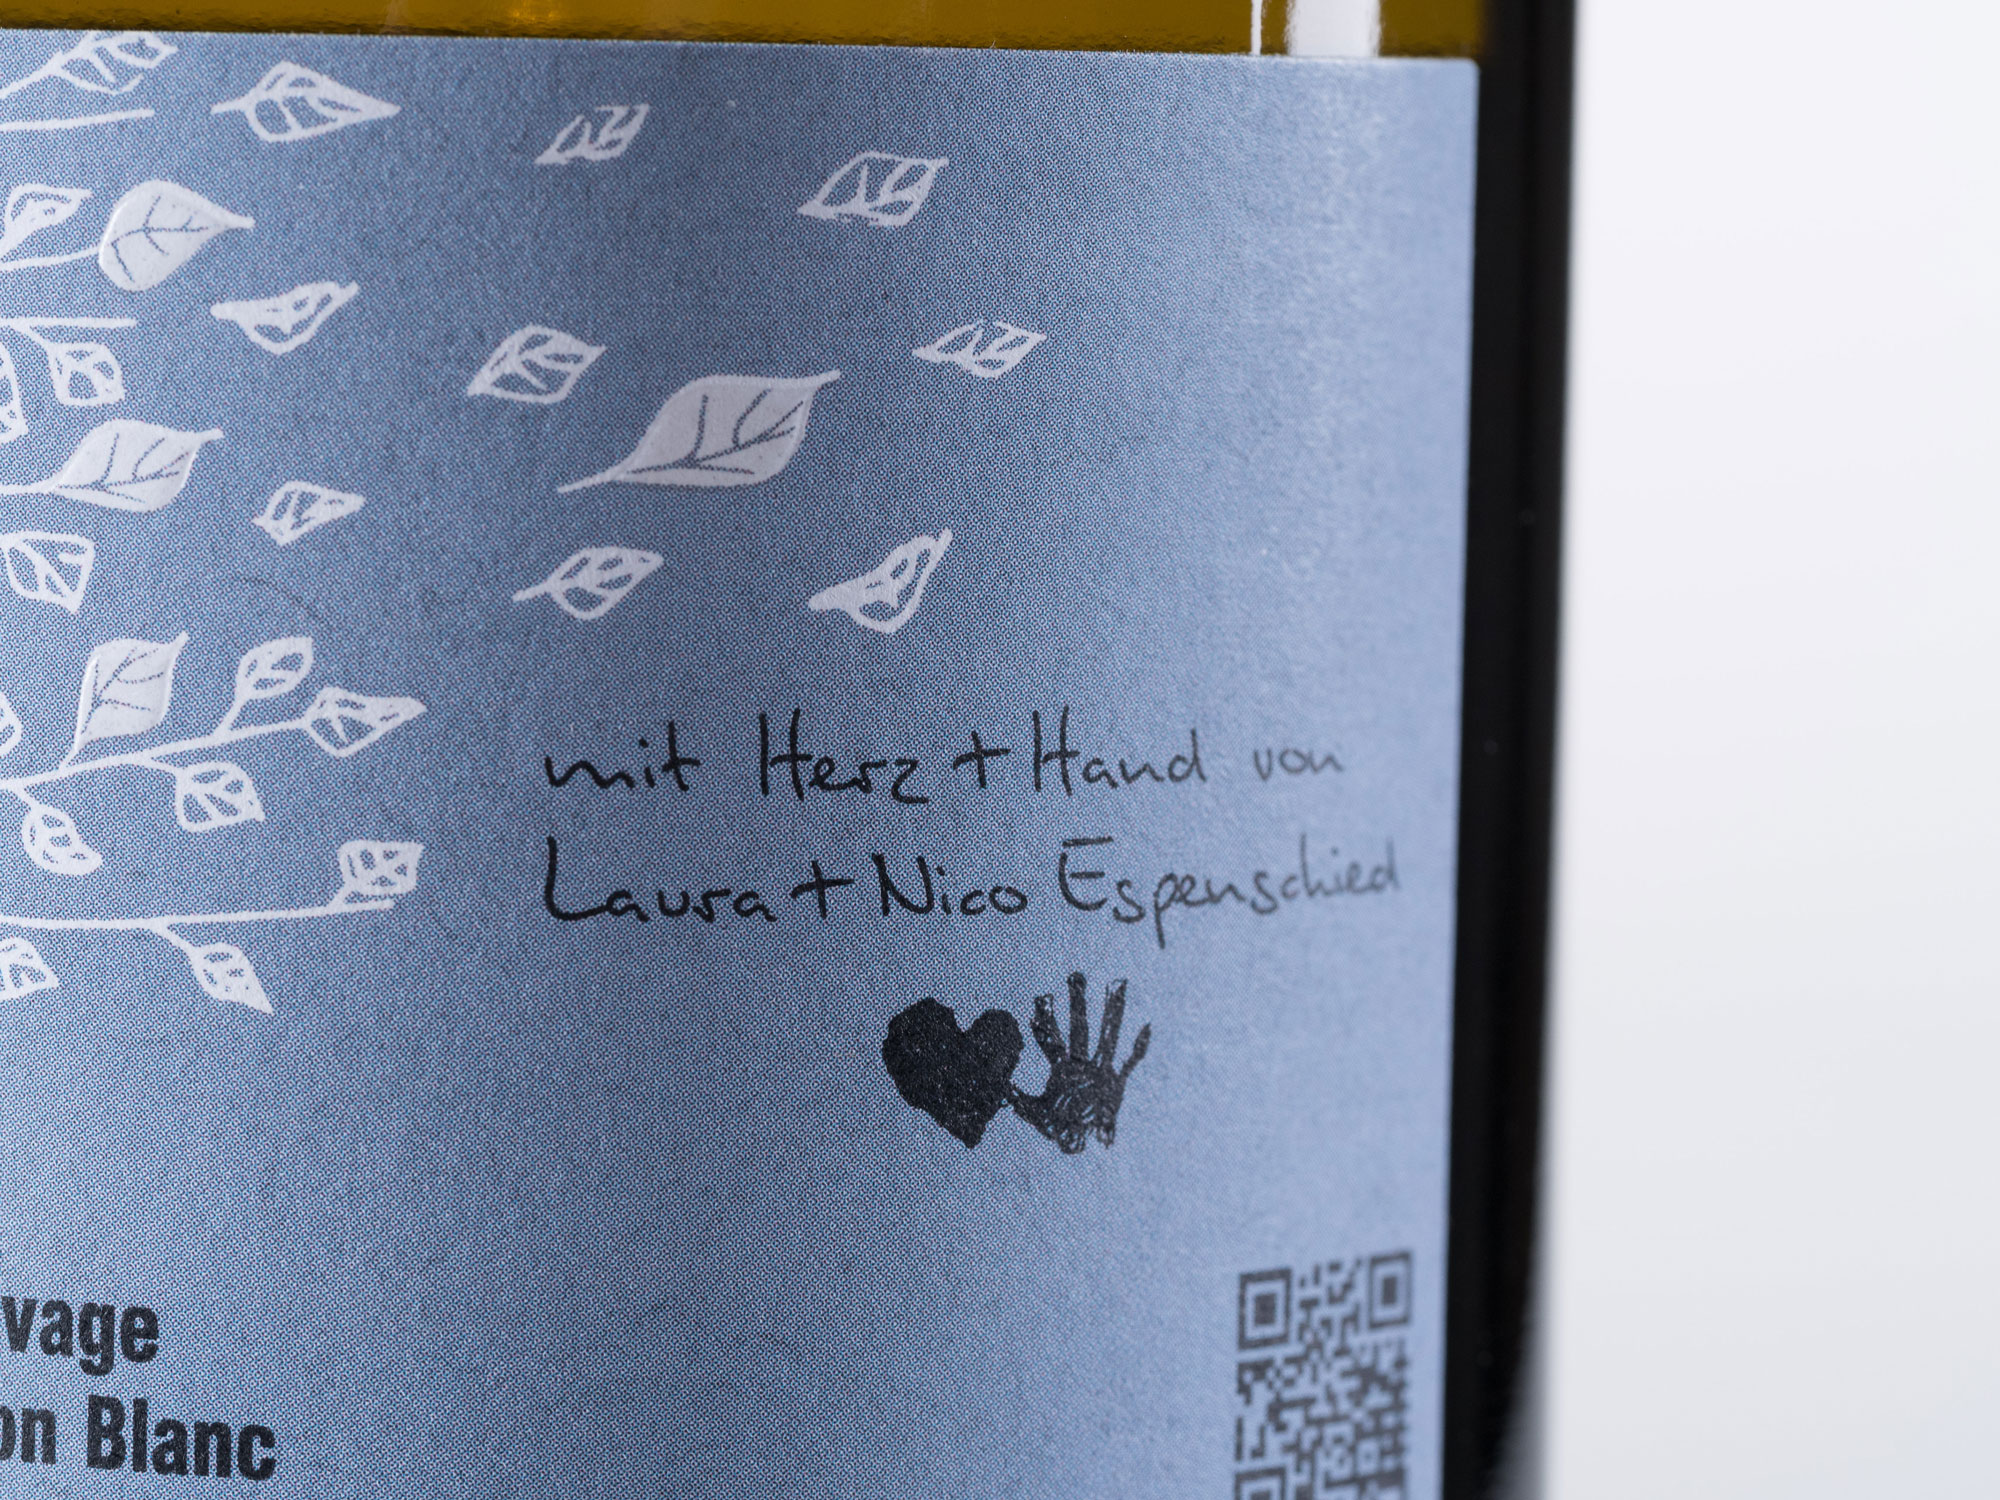 mit Herz + Hand von
Laura + Nico Espenschied
vage
on Blanc